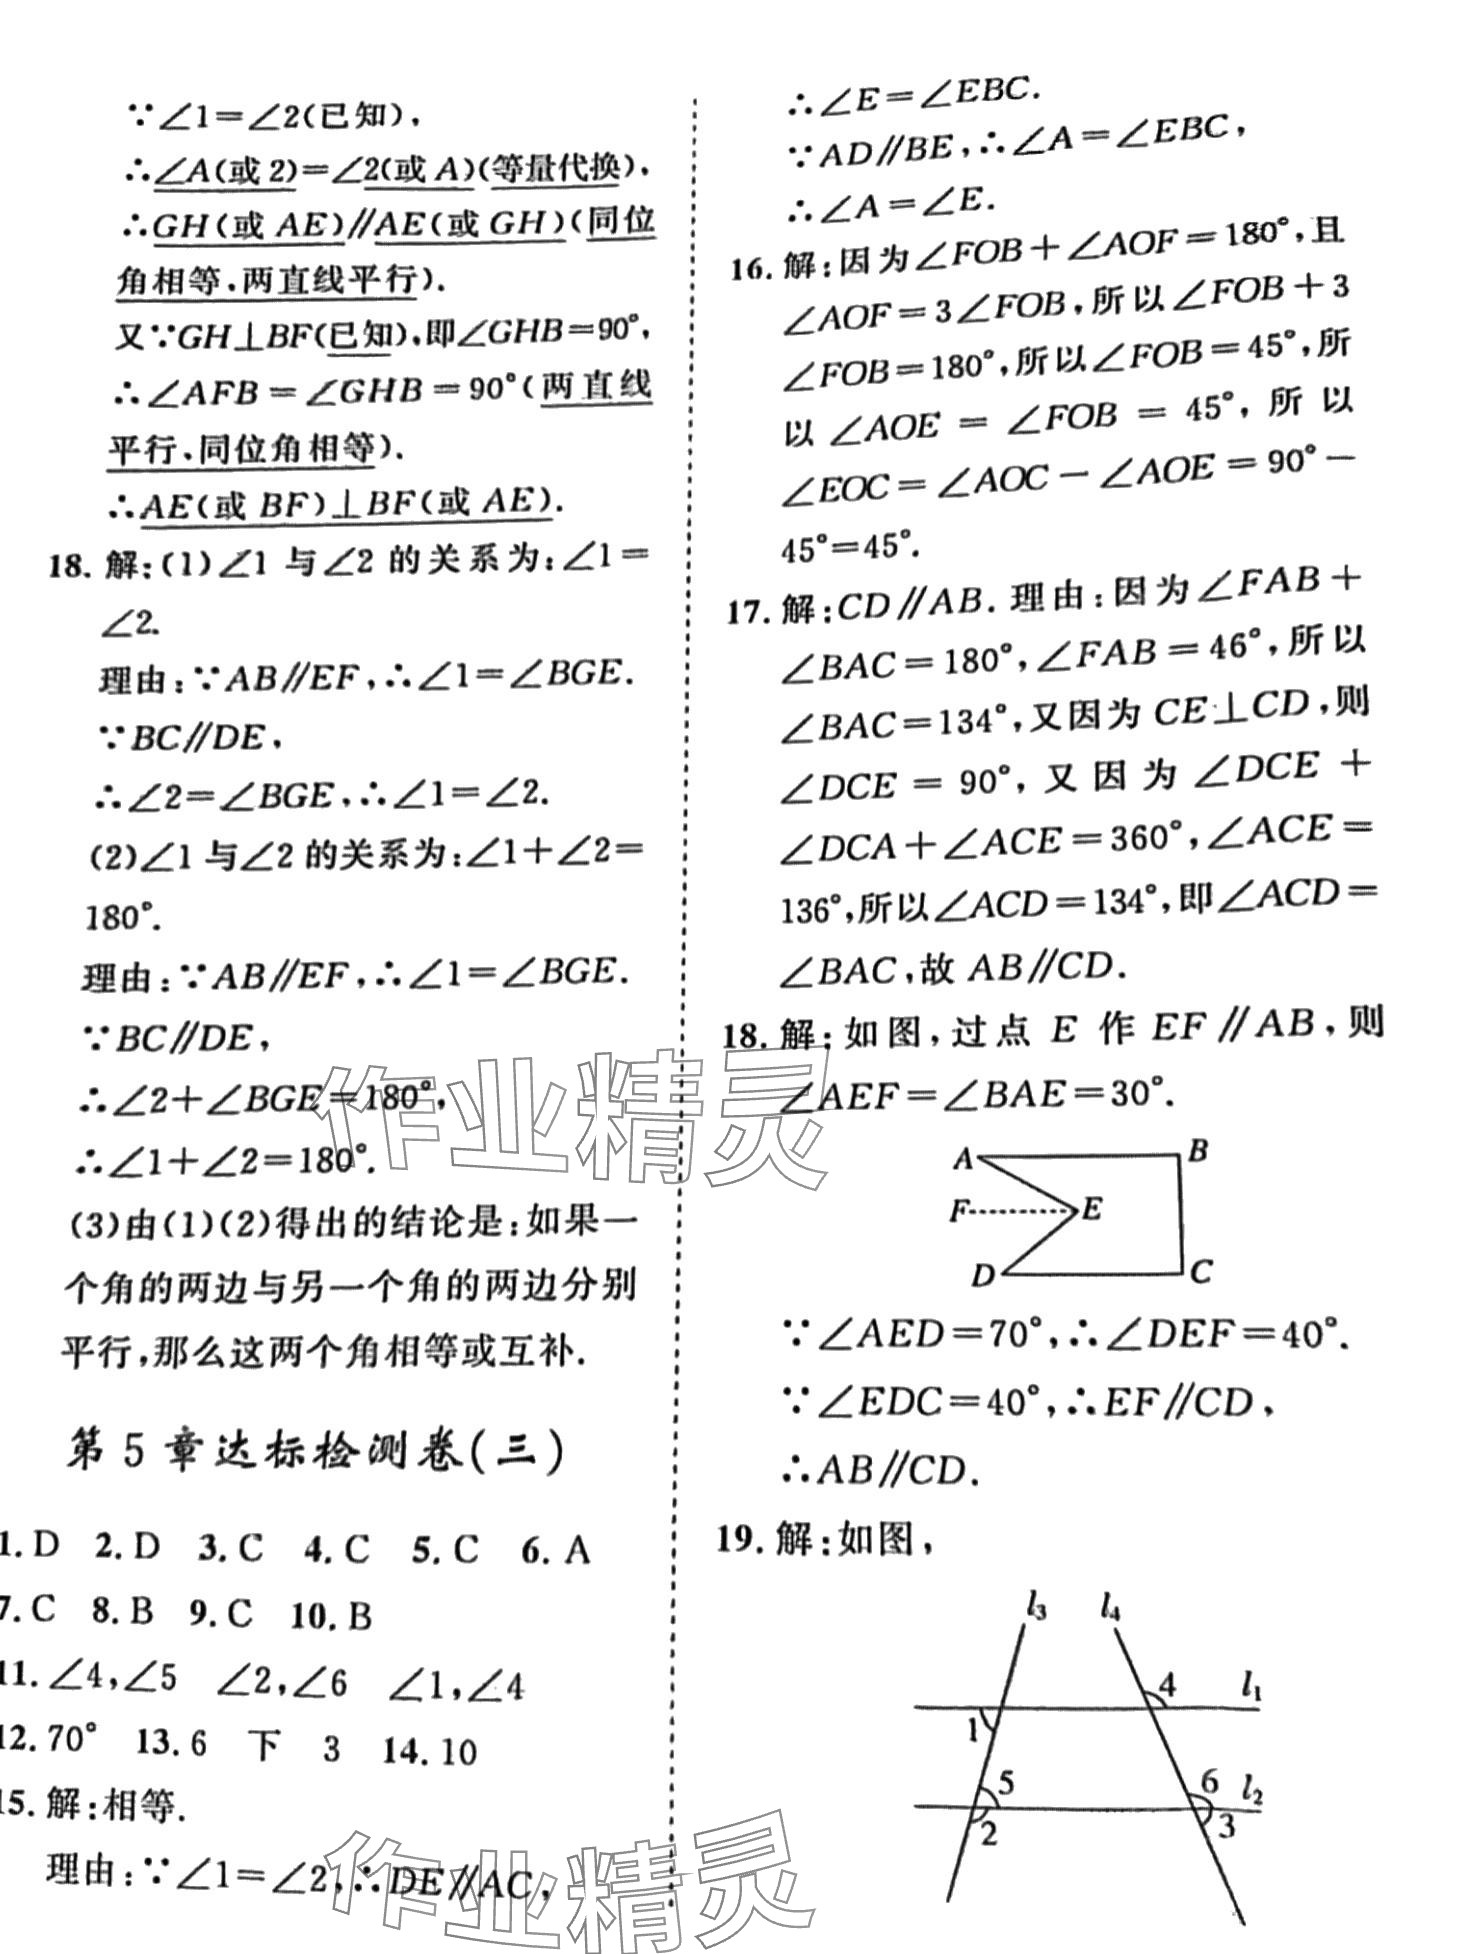 ∵∠1=∠2(已知),
∴∠A(或2)=∠2(或A)(等量代换),
∴GH(或AE)∥AE(或GH)(同位
角相等,两直线平行).
又∵GH⊥BF(已知),即∠GHB=90°,
∴∠AFB=∠GHB=90°(两直线
平行,同位角相等).
∴AE(或BF)⊥BF(或AE).
18. 解:(1)∠1与∠2的关系为:∠1=
∠2.
理由:∵AB∥EF,∴∠1=∠BGE.
∵BC∥DE,
∴∠2=∠BGE,∴∠1=∠2.
(2)∠1与∠2的关系为:∠1+∠2=
180°.
理由:∵AB∥EF,∴∠1=∠BGE.
∵BC∥DE,
∴∠2+∠BGE=180°,
∴∠1+∠2=180°.
(3)由(1)(2)得出的结论是:如果一
个角的两边与另一个角的两边分别
平行,那么这两个角相等或互补.
第5章达标检测卷(三)
1. D 2. D 3. C 4. C 5. C 6. A
7. C 8. B 9. C 10. B
11. ∠4,∠5 ∠2,∠6 ∠1,∠4
12. 70° 13. 6 下 3 14. 10
15. 解:相等.
理由:∵∠1=∠2,∴DE∥AC,
∴∠E=∠EBC.
∵AD∥BE,∴∠A=∠EBC,
∴∠A=∠E.
16. 解:因为∠FOB+∠AOF=180°,且
∠AOF=3∠FOB,所以∠FOB+3
∠FOB=180°,所以∠FOB=45°,所
以∠AOE=∠FOB=45°,所以
∠EOC=∠AOC-∠AOE=90°-
45°=45°.
17. 解:CD∥AB.理由:因为∠FAB+
∠BAC=180°,∠FAB=46°,所以
∠BAC=134°,又因为CE⊥CD,则
∠DCE=90°,又因为∠DCE+
∠DCA+∠ACE=360°,∠ACE=
136°,所以∠ACD=134°,即∠ACD=
∠BAC,故AB∥CD.
18. 解:如图,过点E作EF∥AB,则
∠AEF=∠BAE=30°.
A B
F E
D C
∵∠AED=70°,∴∠DEF=40°.
∵∠EDC=40°,∴EF∥CD,
∴AB∥CD.
19. 解:如图,
l3 l4
4 l1
1
5 6 l2
2 3
作业精灵
作业精灵